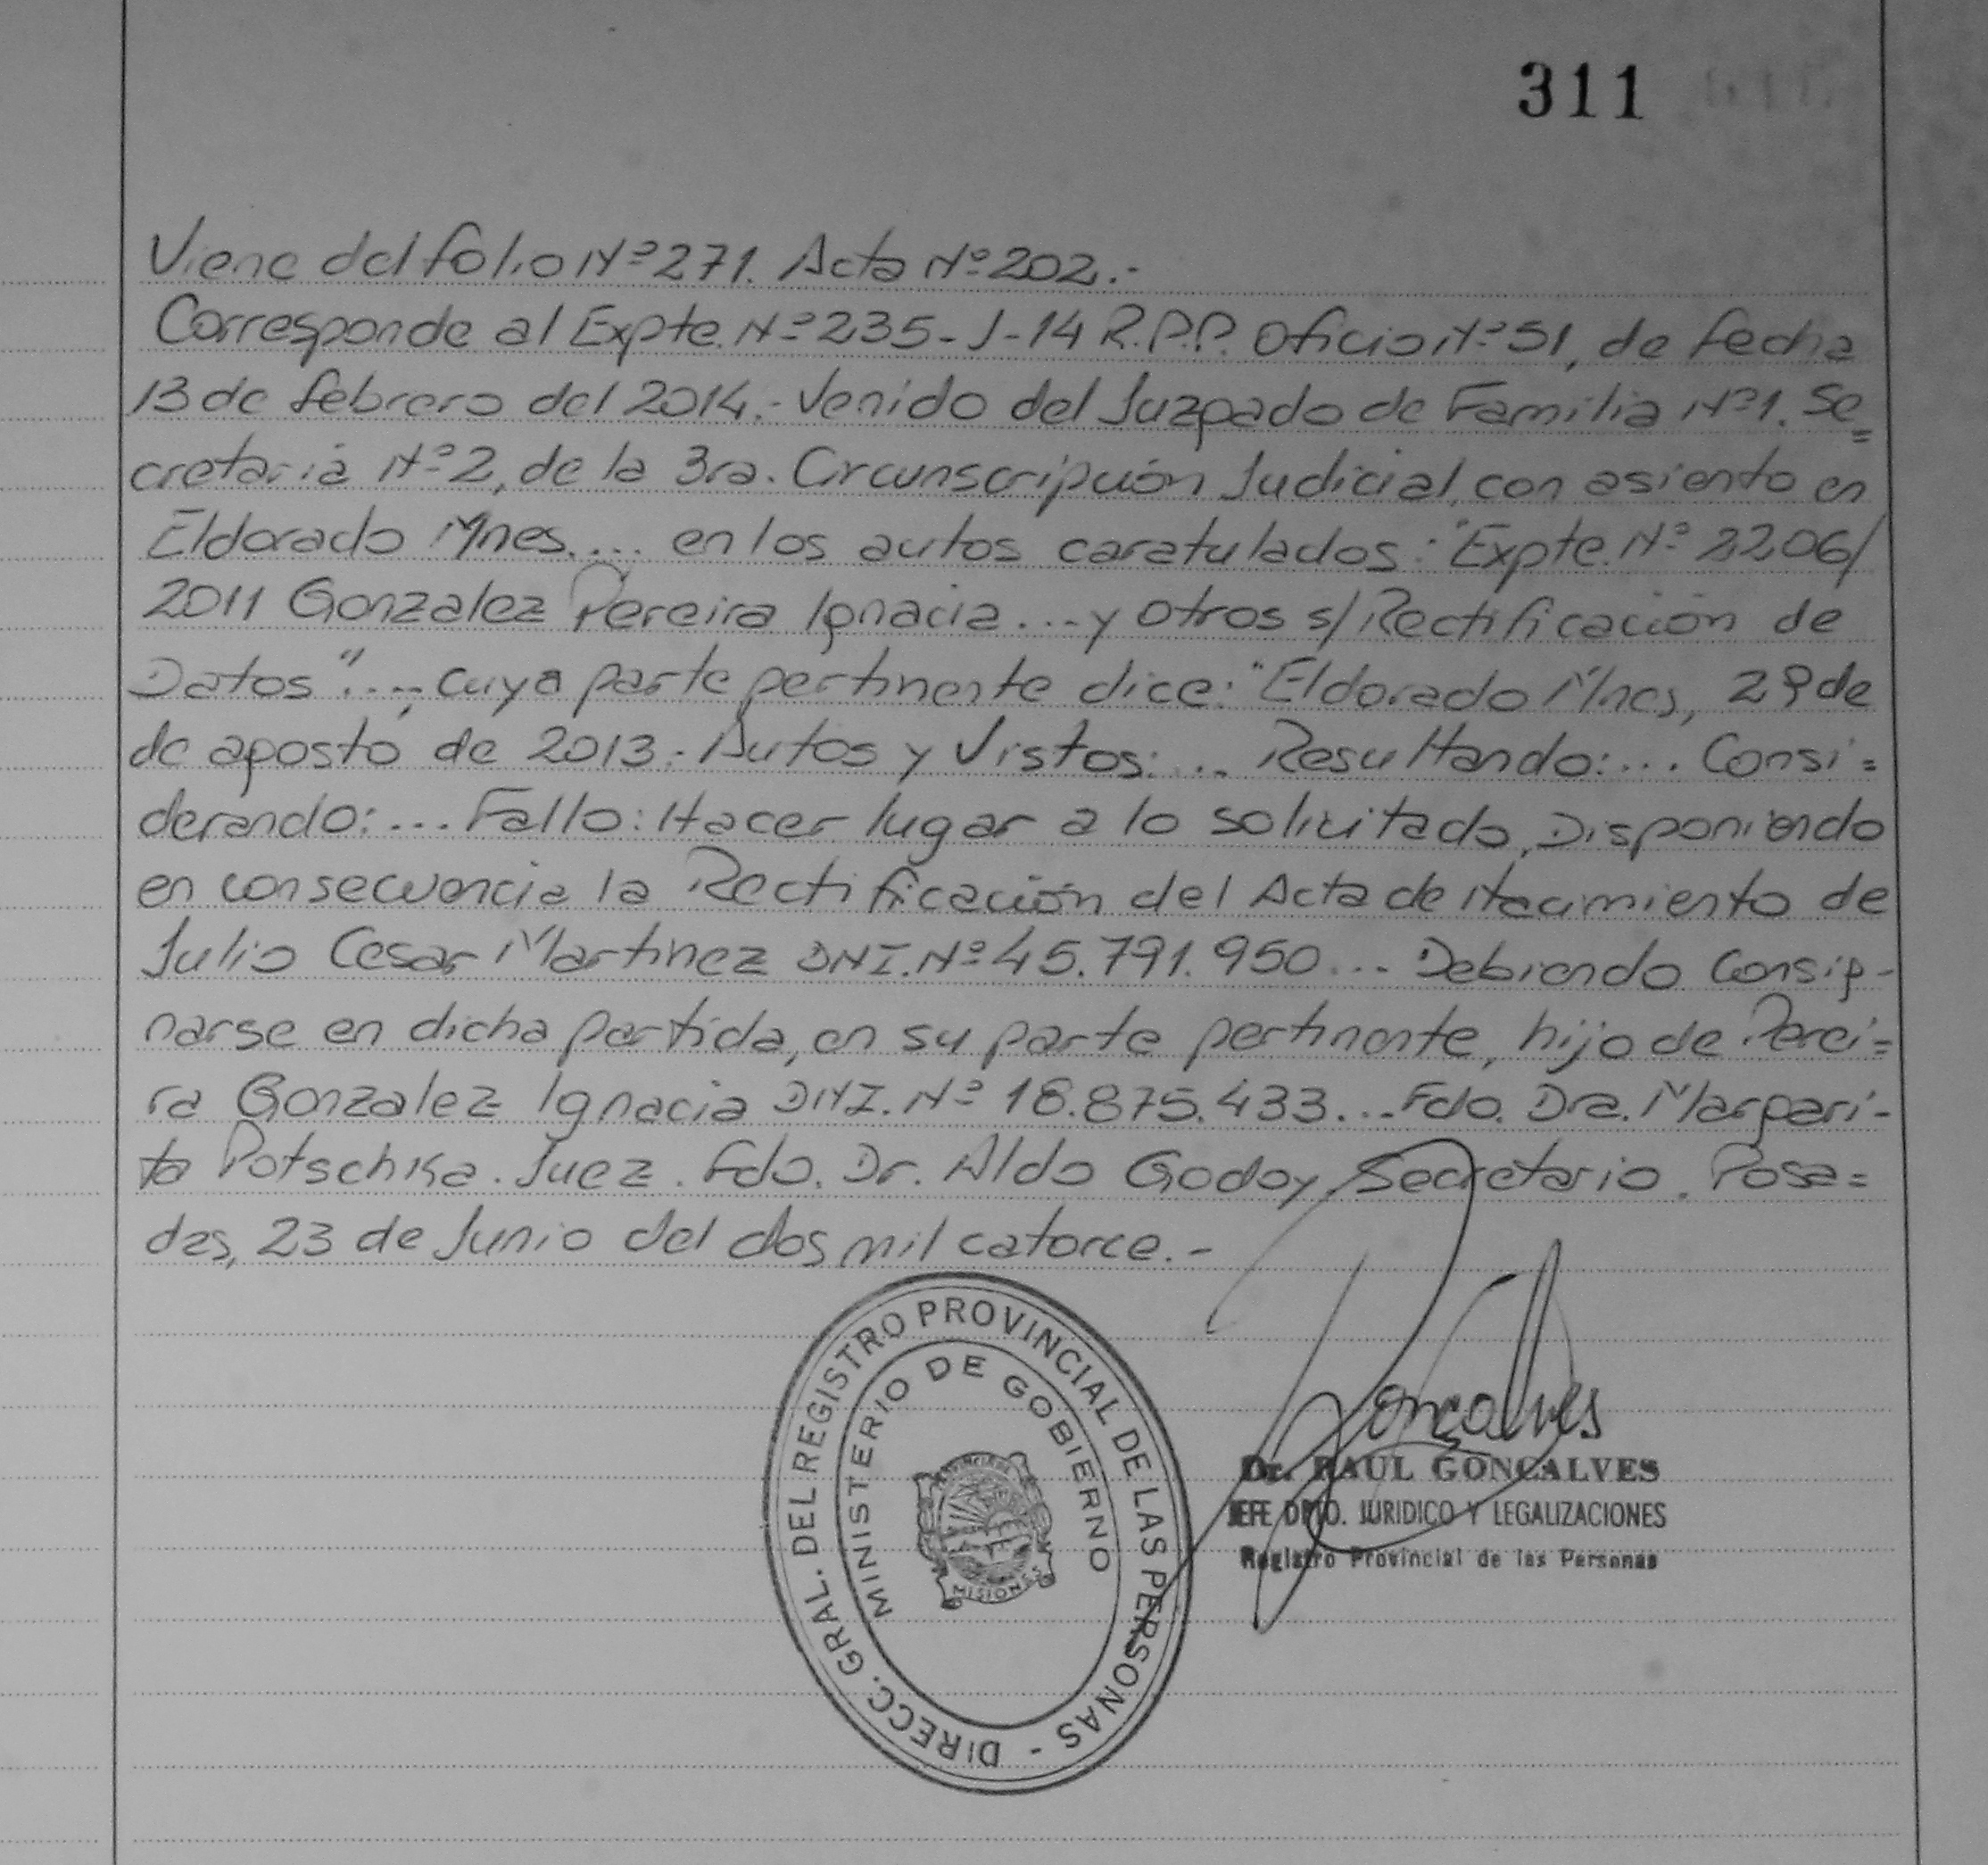 311
Viene del folio Nº 271. Acta Nº 202.-
Corresponde al Expte. Nº 235-J-14 R.P.P. Oficio Nº 51, de fecha
13 de febrero del 2014.- Venido del Juzgado de Familia Nº 1. Se=
cretaria Nº 2, de la 3ra. Circunscripción Judicial, con asiento en
Eldorado Mnes.... en los autos caratulados: "Expte. Nº 2206/
2011 Gonzalez Pereira Ignacia ... y otros s/ Rectificación de
Datos".... cuya parte pertinente dice: "Eldorado Mnes, 29 de
de agosto de 2013.- Autos y Vistos: ... Resultando: ... Consi=
derando: ... Fallo: Hacer lugar a lo solicitado, Disponiendo
en consecuencia la Rectificación del Acta de Nacimiento de
Julio Cesar Martinez DNI. Nº 45.791.950... Debiendo Consig-
narse en dicha partida, en su parte pertinente, hijo de Perei=
ra Gonzalez Ignacia DNI. Nº 18.875.433... Fdo. Dra. Margari-
ta Potschka. Juez. Fdo. Dr. Aldo Godoy Secretario. Posa=
das, 23 de Junio del dos mil catorce.-
DIRECC. GRAL. DEL REGISTRO PROVINCIAL DE LAS PERSONAS -
MINISTERIO DE GOBIERNO
MISIONES
Gonçalves
Dr. RAUL GONCALVES
JEFE DPTO. JURIDICO Y LEGALIZACIONES
Registro Provincial de las Personas